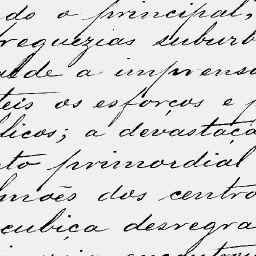 do o principal,
reguezias suburb
alde a imprensa
teis os esforços e p
licos; a devastaçã
to primordial
mões dos centro
cubiça desregra